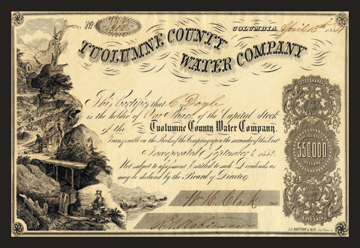 No
COLUMBIA, April 15th
TUOLUMNE COUNTY
WATER COMPANY
This Certifies that C. Dogle
is the holder of One Share of the Capital Stock
of the Tuolumne County Water Company.
Transferable on the Books of the Company upon the surrender of this Cert
Incorporated September
Not subject to assignment. Entitled to such Dividends as
may be declared by the Board of Directors
$550.000
Wm H. Clark